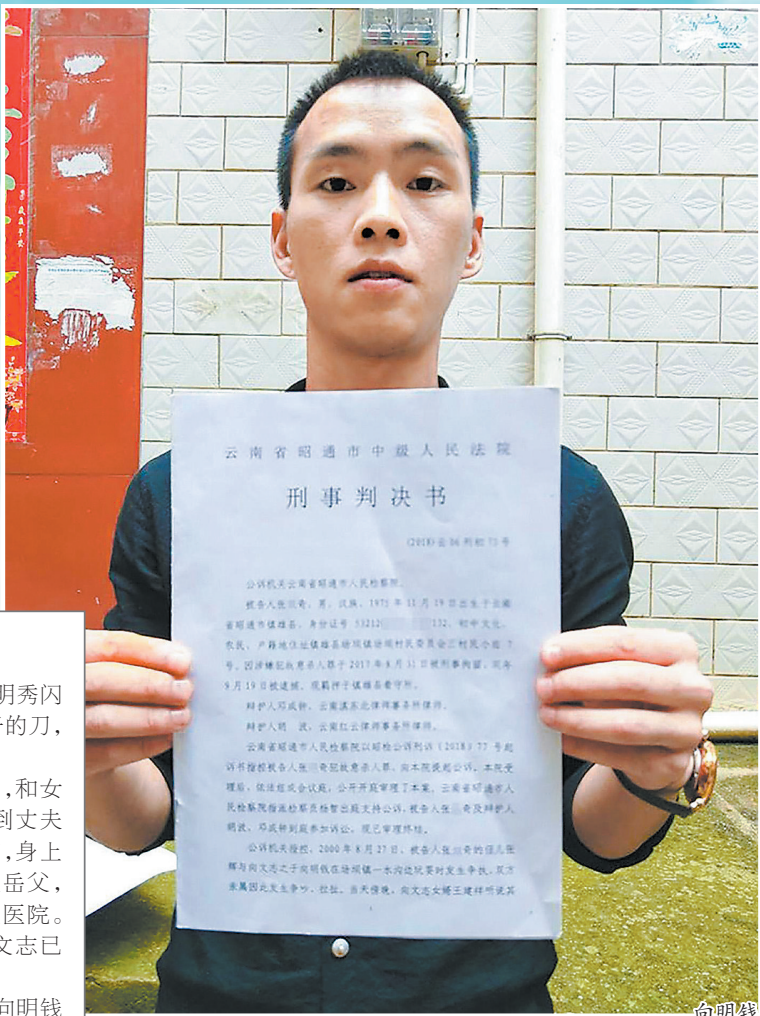 云南省昭通市中级人民法院
刑事判决书
(2018)云06刑初75号
公诉机关云南省昭通市人民检察院。
被告人张 奇,男,汉族,1975年11月19日出生于云南
省昭通市镇雄县,身份证号53212 132,初中文化,
农民,户籍地住址镇雄县场坝镇场坝村民委员会三村民小组7
号。因涉嫌犯故意杀人罪于2017年8月31日被刑事拘留,同年
9月19日被逮捕。现羁押于镇雄县看守所。
辩护人邓成钟,云南滇东北律师事务所律师。
辩护人明 波,云南红云律师事务所律师。
云南省昭通市人民检察院以昭检公诉刑诉(2018)77号起
诉书指控被告人张 奇犯故意杀人罪,向本院提起公诉。本院受
理后,依法组成合议庭,公开开庭审理了本案。云南省昭通市人
民检察院指派检察员杨智出庭支持公诉,被告人张 奇及辩护人
明波、邓成钟到庭参加诉讼。现已审理终结。
公诉机关指控,2000年8月27日,被告人张 奇的侄儿张
辉与向文志之子向明钱在场坝镇一水沟边玩耍时发生争执,双方
亲属因此发生争吵、拉扯。当天傍晚,向文志女婿王建祥听说其
明秀闪
的刀,
,和女
到丈夫
,身上
岳父,
医院。
文志已
向明钱
向明钱